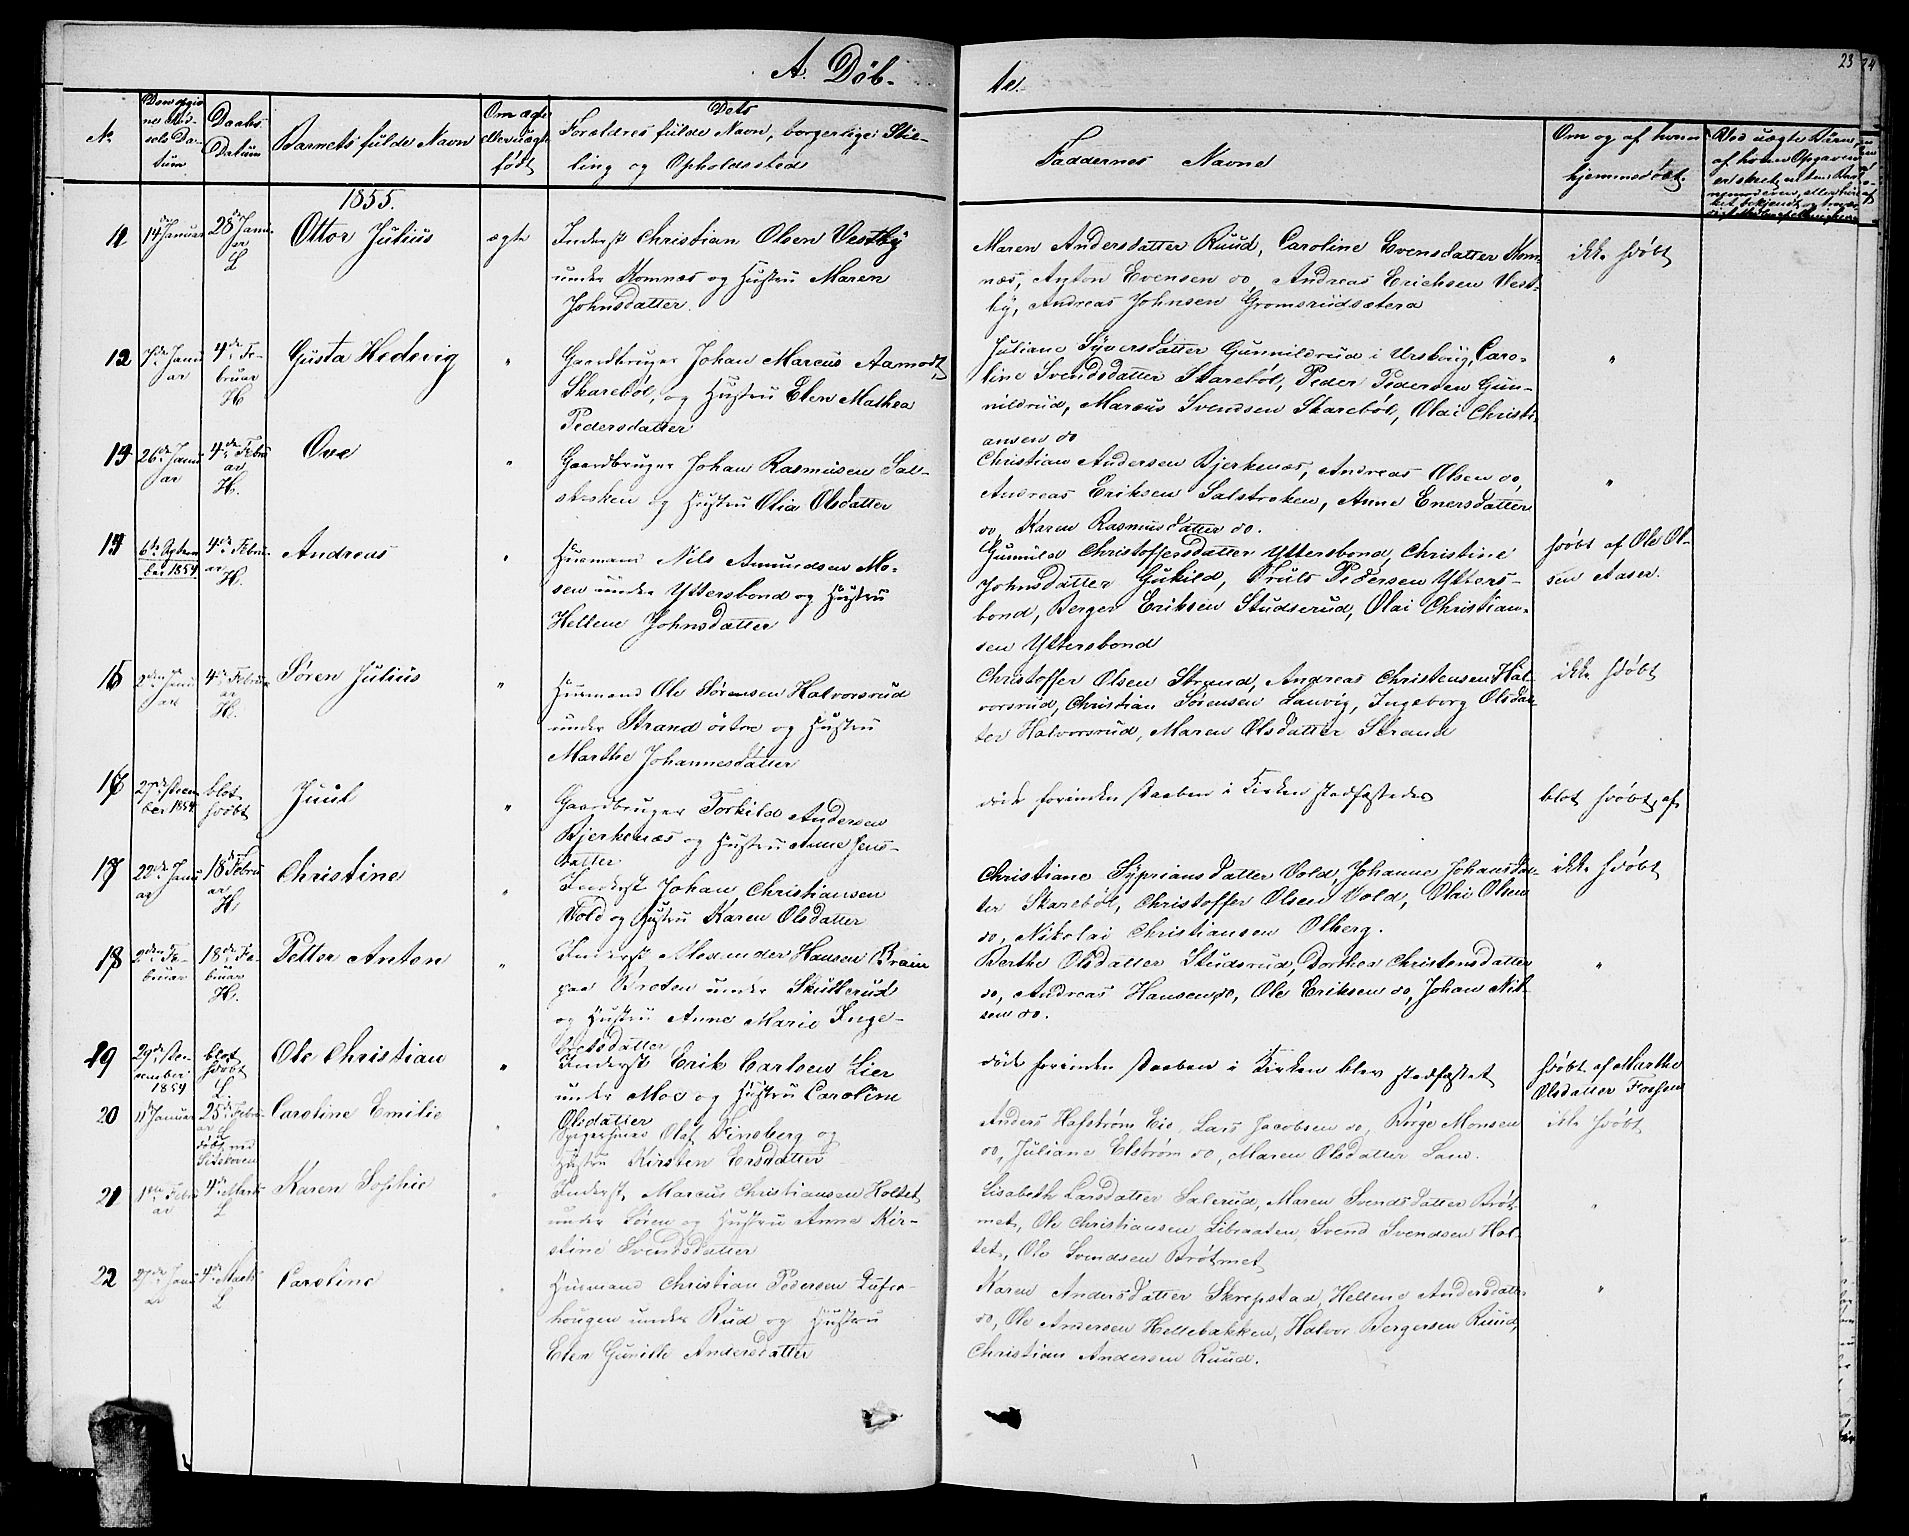 A. Döb-
te.
23
No
Daabs
Datum
Barnets fulde Navn
Om ægte
eller uægte
födt
Dets
Forældres fulde Navn, borgerlige Stil-
ling og Opholdssted
Faddernes Navne
Om og af hvem
hjemmedöbt.
1855.
11 14de Januar 28de Janu
ar
L
Ottor Julius ægte
Inderst Christian Olsen Vestby
under Komnæs og Hustru Maren
Johnsdatter.
Maren Andersdatter Ruud, Caroline Evensdatter Kom-
næs, Anton Evensen do, Andreas Erichsen Vest-
by, Andreas Johnsen Gromsrudsætera
ikke hjdöbt
12 7de Janu
ar
4de Fe-
bruar
H
Gusta Hedevig "
Gaardbruger Johan Marcus Aamodt,
Skareböl, og Hustru Elen Mathea
Pedersdatter
Juliane Syversdatter Gunnildrud i Urskoug, Caro-
line Svendsdatter Skareböl, Peder Pedersen Gun-
nildrud, Marcus Svendsen Skareböl, Olai Christi-
ansen do
"
13 26de Janu
ar
4de Febru
ar
H.
Ove "
Gaardbruger Johan Rasmusen Sal-
stroken og Hustru Olia Olsdatter
Christian Andersen Bjerkenæs, Andreas Olsen do,
Andreas Eriksen Salstroken, Anne Enersdatter
do, Karen Rasmusdatter do.
"
14 6te Septem
ber 1854
4de Febru-
ar
H.
Andreas "
Huusmand Nils Amundsen Mo-
sen under Yttersbond og Hustru
Hellene Johnsdatter
Gunnild Christoffersdatter Yttersbond, Christine
Johnsdatter Gukild, Truls Pedersen Ytters-
bond, Berger Eriksen Studserud, Olai Christian-
sen Yttersbond
hjdöbt af Ole Ol-
sen Aasen.
15 2den Janu
ar
4de Febru
ar
H.
Sören Julius "
Huusmand Ole Sörensen Halvorsrud
under Strand östre og Hustru
Marthe Johannesdatter
Christoffer Olsen Strand, Andreas Christensen Hal-
vorsrud, Christian Sörensen Lanvig, Ingeborg Olsdat-
ter Halvorsrud, Maren Olsdatter Strand
ikke hjdöbt
16 27de Decem
ber 1854.
blot
hjdöbt
Juul "
Gaardbruger Torkild Andersen
Bjerkenæs og Hustru Anne Jens-
datter
döde forinden Daaben i Kirken stadfæstedes
blot hjdöbt, af
17 22de Janu
ar
18de Febru
ar
H.
Christine "
Inderst Johan Christiansen
Vold og Hustru Karen Olsdatter
Christiane Syprians datter Vold, Johanne Johansdat-
ter Skareböl, Christoffer Olsen Vold, Olai Olsen
do, Nikolai Christiansen Olberg.
ikke hjdöbt
18 2den Fe-
bruar
18de Fe-
bruar
H.
Petter Anton "
Inderst Alexander Hansen Brain
paa Broten under Skullerud
og Hustru Anne Marie Inge-
bretsdatter
Berthe Olsdatter Studsrud, Dorthea Christensdatter
do, Andreas Hansen do, Ole Eriksen do, Johan Nil-
sen do.
"
19 29de De-
cember
1854
blot
hjdöbt
L
Ole Christian "
Inderst Erik Carlsen Lier
under Moe og Hustru Caroline
Olsdatter
döde forinden Daaben i Kirken blev stadfæstet
hjdöbt af Marthe
Olsdatter Fossen
20 11te Januar 25de Febru
ar
döbt ved
Sideskoven
Caroline Emilie "
Olaf Finsberg og
Hustru Kirsten Ersdatter
Anders Hafström Eie, Lars Jacobsen do, Börge Monsen
do, Juliane Elström do, Maren Olsdatter Lund.
ikke hjdöbt
21 1ste Febru
ar
4de Marts
L
Karen Sophie "
Inderst, Marcus Christiansen Holtet
under Sören og Hustru Anne Kir-
stine Svendsdatter
Lisabeth Larsdatter Salerud, Maren Svends datter Bröt-
met, Ole Christiansen Libraaten, Svend Svendsen Hol-
tet, Ole Svendsen Brötmet
"
22 27de Janu
ar
4de Marts
L
Caroline "
Huusmand Christian Pedersen
hougen under Rud og Hustru
Elen Gunille Andersdatter
Karen Anders datter Skrepstad, Hellene Andersdatter
do, Ole Andersen Hellebækken, Halvor Bergersen Ruud,
Christian Andersen Ruud.
"